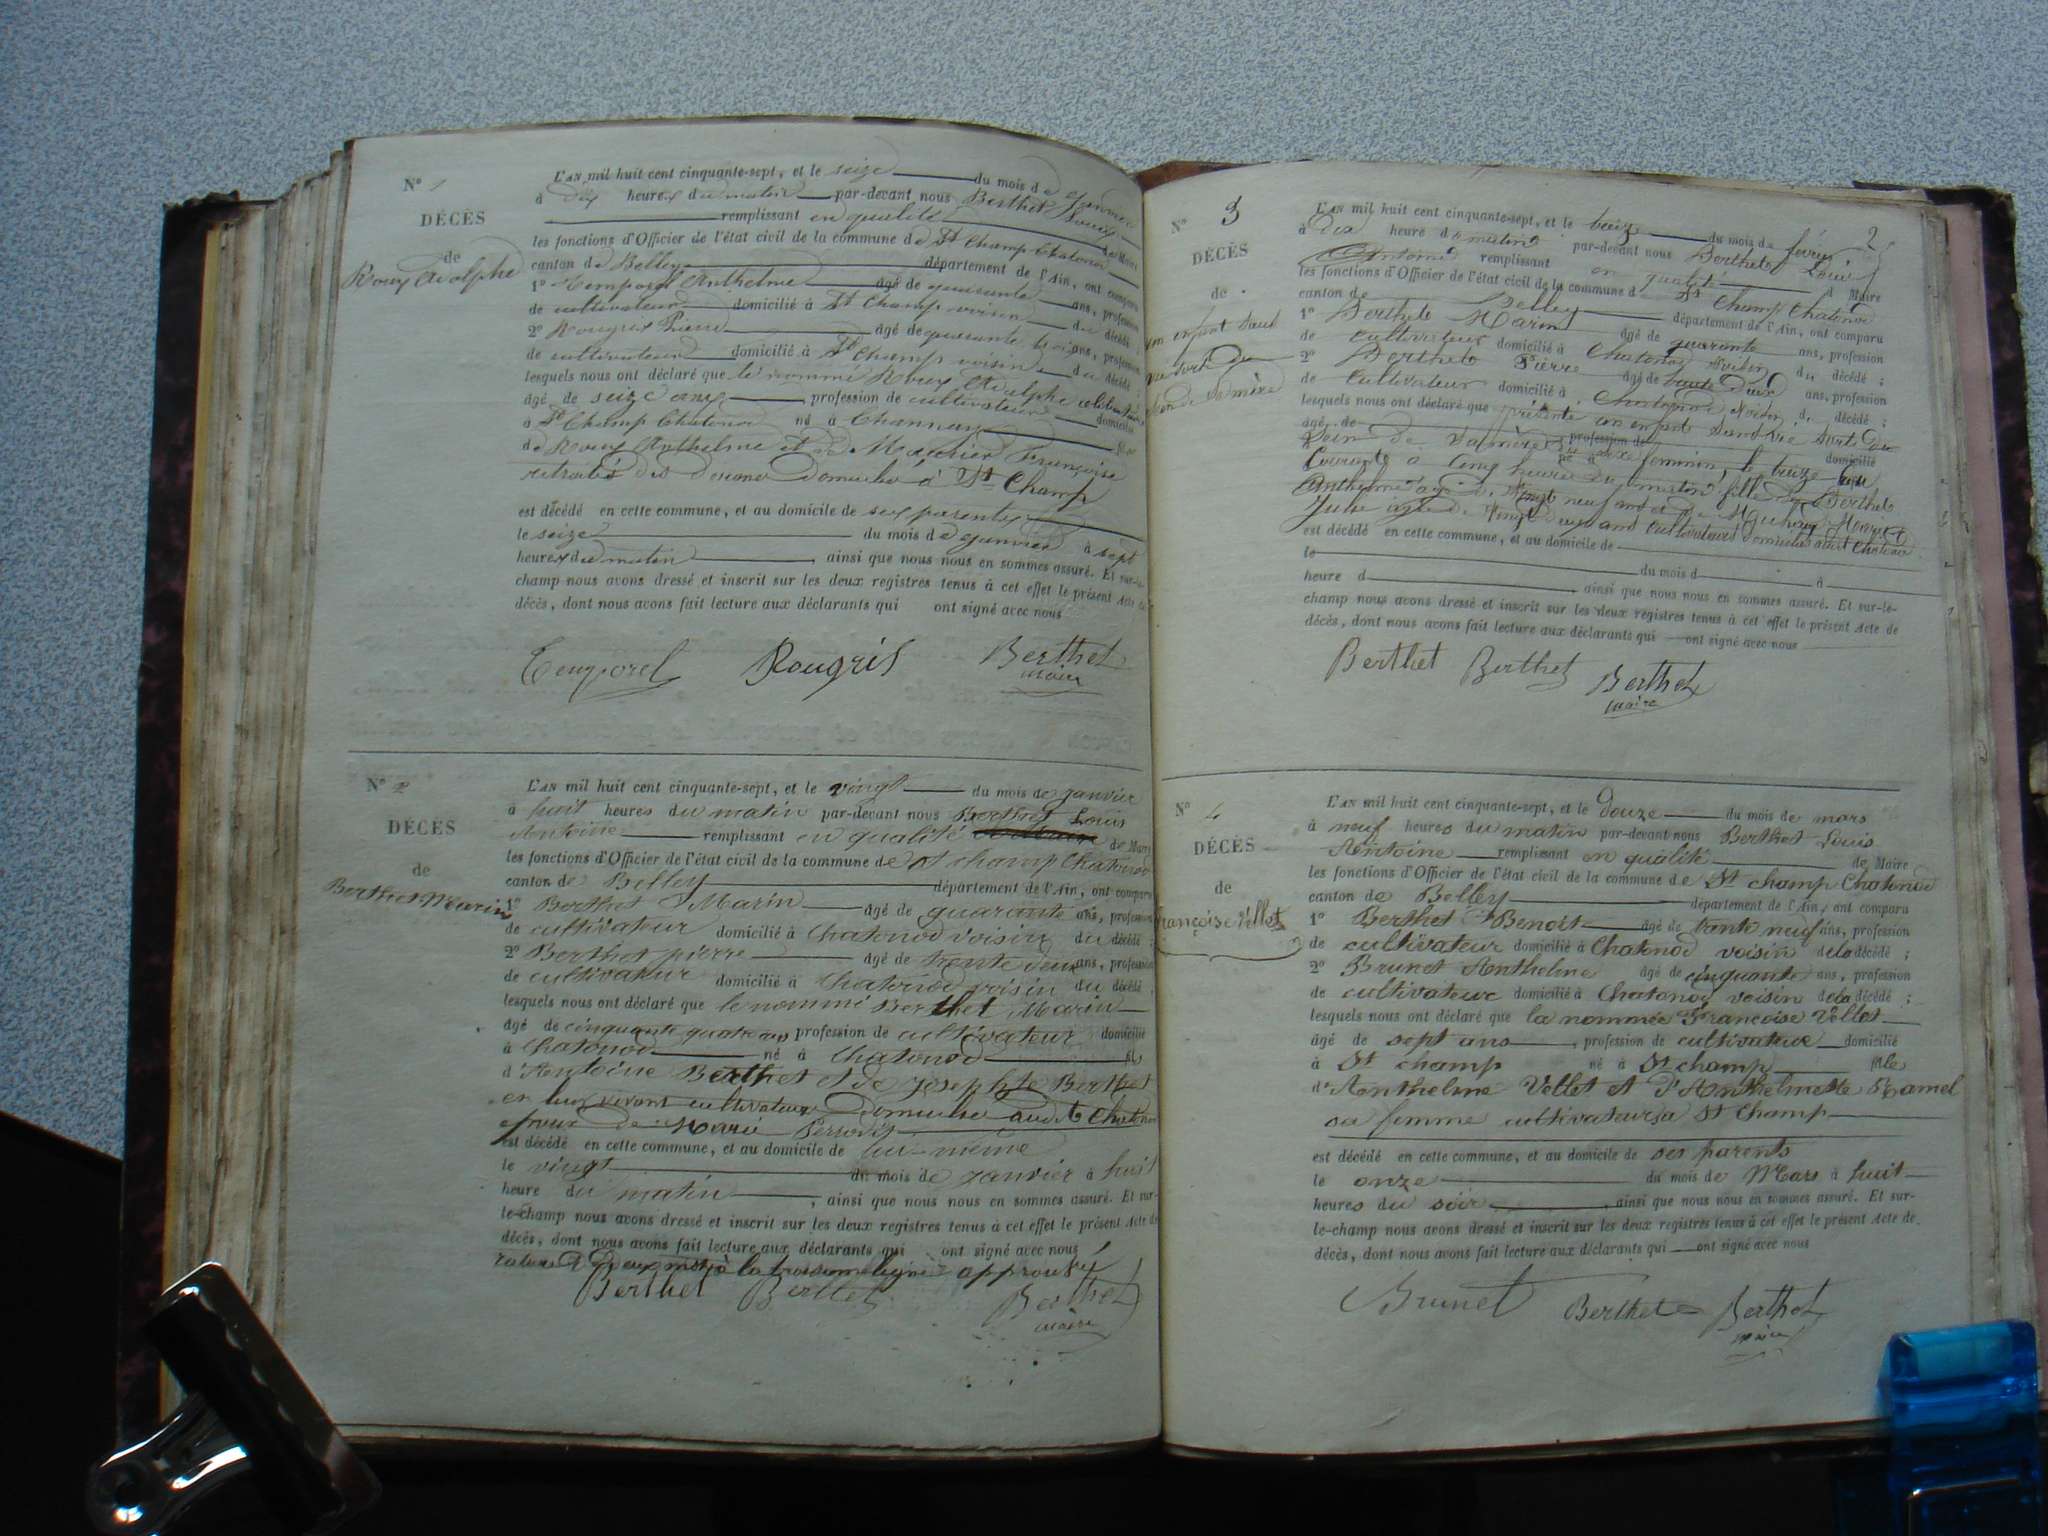 N° 1
DÉCÈS
de
Roux Adolphe
L'AN mil huit cent cinquante-sept, et le seize du mois de janvier
à dix heures du matin par-devant nous Berthet Louis
remplissant en qualité de Maire
les fonctions d'Officier de l'état civil de la commune de St Champ Chatonod
canton de Belley département de l'Ain, ont comparu
1° Temporel Anthelme âgé de quarante ans, profession
de cultivateur domicilié à St Champ voisin du décédé ;
2° Rougris Pierre âgé de quarante ans, profession
de cultivateur domicilié à St Champ voisin du décédé ;
lesquels nous ont déclaré que le nommé Roux Adolphe célibataire
âgé de seize ans, profession de cultivateur domicilié
à St Champ Chatonod né à Channay fils
de Roux Anthelme et de Françoise
retraité des douanes domicilié à St Champ
est décédé en cette commune, et au domicile de ses parents
le seize du mois de janvier à sept
heures du matin, ainsi que nous nous en sommes assuré. Et sur-le-
champ nous avons dressé et inscrit sur les deux registres tenus à cet effet le présent Acte de
décès, dont nous avons fait lecture aux déclarants qui ont signé avec nous
Temporel Rougris Berthet
maire
N° 2
DÉCÈS
de
Berthet Marin
L'AN mil huit cent cinquante-sept, et le vingt du mois de janvier
à huit heures du matin par-devant nous Berthet Louis
Antoine remplissant en qualité de Maire
les fonctions d'Officier de l'état civil de la commune de St champ Chatonod
canton de Belley département de l'Ain, ont comparu
1° Berthet Marin âgé de quarante ans, profession
de cultivateur domicilié à Chatonod voisin du décédé ;
2° Berthet pierre âgé de trente deux ans, profession
de cultivateur domicilié à Chatonod voisin du décédé ;
lesquels nous ont déclaré que le nommé Berthet Marin
âgé de cinquante quatre ans profession de cultivateur domicilié
à Chatonod né à Chatonod fils
d'Antoine Berthet et de Josephte Berthet
en leur vivant cultivateurs domicilié audit Chatonod
époux de Marie
est décédé en cette commune, et au domicile de lui-même
le vingt du mois de janvier à huit
heure du matin, ainsi que nous nous en sommes assuré. Et sur-
le-champ nous avons dressé et inscrit sur les deux registres tenus à cet effet le présent Acte de
décès, dont nous avons fait lecture aux déclarants qui ont signé avec nous
rature de deux mots à la troisième ligne approuvé
Berthet Berthet Berthet
maire
2
N° 3
DÉCÈS
de
un enfant sans
vie sorti du
sein de sa mère
L'AN mil huit cent cinquante-sept, et le treize du mois de février
à dix heure du matin par-devant nous Berthet Louis
Antoine remplissant en qualité d Maire
les fonctions d'Officier de l'état civil de la commune d St Champ Chatonod
canton de Belley département de l'Ain, ont comparu
1° Berthet Marin âgé de quarante ans, profession
de cultivateur domicilié à Chatonod voisin du décédé ;
2° Berthet Pierre âgé de trente deux ans, profession
de cultivateur domicilié à Chatonod voisin d décédé ;
lesquels nous ont déclaré que présenté un enfant sans vie sorti du
âgé de profession de domicilié
sein de sa mère du sexe féminin, le treize du
courant à cinq heure du matin fille de Berthet
Anthelme âgé de vingt neuf ans et de
Julie âgée de vingt deux ans cultivateurs domicilié audit Chatonod
est décédé en cette commune, et au domicile de
le du mois d à
heure d ainsi que nous nous en sommes assuré. Et sur-le-
champ nous avons dressé et inscrit sur les deux registres tenus à cet effet le présent Acte de
décès, dont nous avons fait lecture aux déclarants qui ont signé avec nous
Berthet Berthet Berthet
maire
N° 4
DÉCÈS
de
Françoise Vellet
L'AN mil huit cent cinquante-sept, et le douze du mois de mars
à neuf heures du matin par-devant nous Berthet Louis
Antoine remplissant en qualité de Maire
les fonctions d'Officier de l'état civil de la commune de St champ Chatonod
canton de Belley département de l'Ain, ont comparu
1° Berthet Benoit âgé de trente neuf ans, profession
de cultivateur domicilié à Chatonod voisin de la décédé ;
2° Brunet Anthelme âgé de cinquante ans, profession
de cultivateur domicilié à Chatonod voisin de la décédé ;
lesquels nous ont déclaré que la nommée Françoise Vellet
âgé de sept ans, profession de cultivatrice domicilié
à St champ né à St champ fille
d'Anthelme Vellet et d'Anthelmette Hamel
sa femme cultivateurs à St Champ
est décédé en cette commune, et au domicile de ses parents
le onze du mois de Mars à huit
heures du soir, ainsi que nous nous en sommes assuré. Et sur-
le-champ nous avons dressé et inscrit sur les deux registres tenus à cet effet le présent Acte de
décès, dont nous avons fait lecture aux déclarants qui ont signé avec nous
Brunet Berthet Berthet
maire